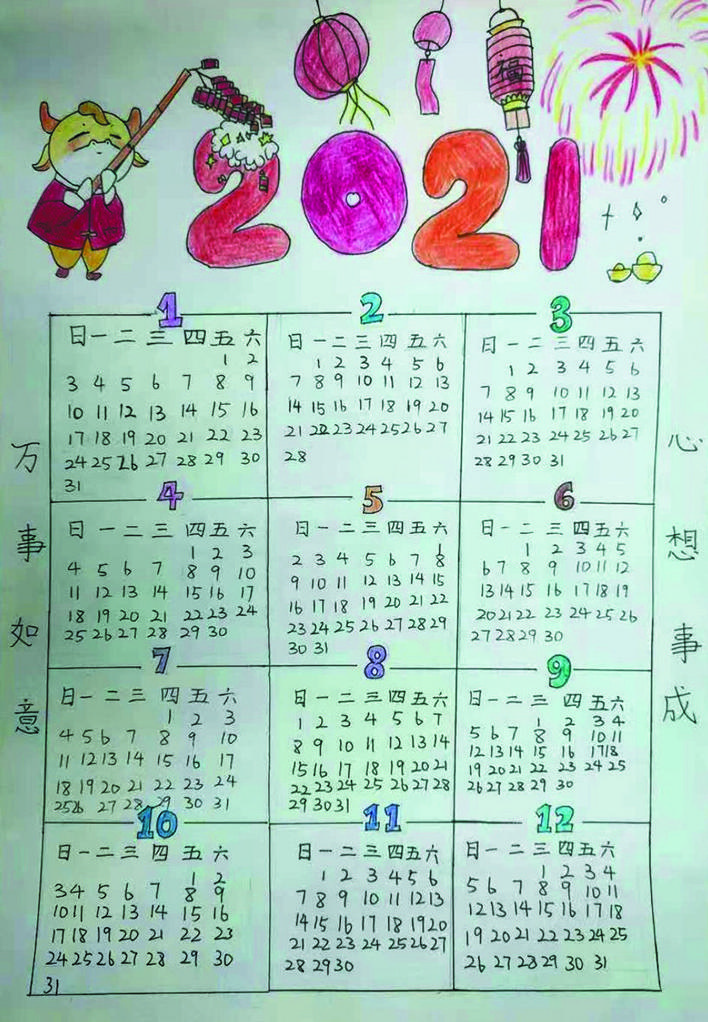 福
2021
万事如意
心想事成
1
日 一 二 三 四 五 六
1 2
3 4 5 6 7 8 9
10 11 12 13 14 15 16
17 18 19 20 21 22 23
24 25 26 27 28 29 30
31
2
日 一 二 三 四 五 六
1 2 3 4 5 6
7 8 9 10 11 12 13
14 15 16 17 18 19 20
21 22 23 24 25 26 27
28
3
日 一 二 三 四 五 六
1 2 3 4 5 6
7 8 9 10 11 12 13
14 15 16 17 18 19 20
21 22 23 24 25 26 27
28 29 30 31
4
日 一 二 三 四 五 六
1 2 3
4 5 6 7 8 9 10
11 12 13 14 15 16 17
18 19 20 21 22 23 24
25 26 27 28 29 30
5
日 一 二 三 四 五 六
1
2 3 4 5 6 7 8
9 10 11 12 13 14 15
16 17 18 19 20 21 22
23 24 25 26 27 28 29
30 31
6
日 一 二 三 四 五 六
1 2 3 4 5
6 7 8 9 10 11 12
13 14 15 16 17 18 19
20 21 22 23 24 25 26
27 28 29 30
7
日 一 二 三 四 五 六
1 2 3
4 5 6 7 8 9 10
11 12 13 14 15 16 17
18 19 20 21 22 23 24
25 26 27 28 29 30 31
8
日 一 二 三 四 五 六
1 2 3 4 5 6 7
8 9 10 11 12 13 14
15 16 17 18 19 20 21
22 23 24 25 26 27 28
29 30 31
9
日 一 二 三 四 五 六
1 2 3 4
5 6 7 8 9 10 11
12 13 14 15 16 17 18
19 20 21 22 23 24 25
26 27 28 29 30
10
日 一 二 三 四 五 六
1 2
3 4 5 6 7 8 9
10 11 12 13 14 15 16
17 18 19 20 21 22 23
24 25 26 27 28 29 30
31
11
日 一 二 三 四 五 六
1 2 3 4 5 6
7 8 9 10 11 12 13
14 15 16 17 18 19 20
21 22 23 24 25 26 27
28 29 30
12
日 一 二 三 四 五 六
1 2 3 4
5 6 7 8 9 10 11
12 13 14 15 16 17 18
19 20 21 22 23 24 25
26 27 28 29 30 31